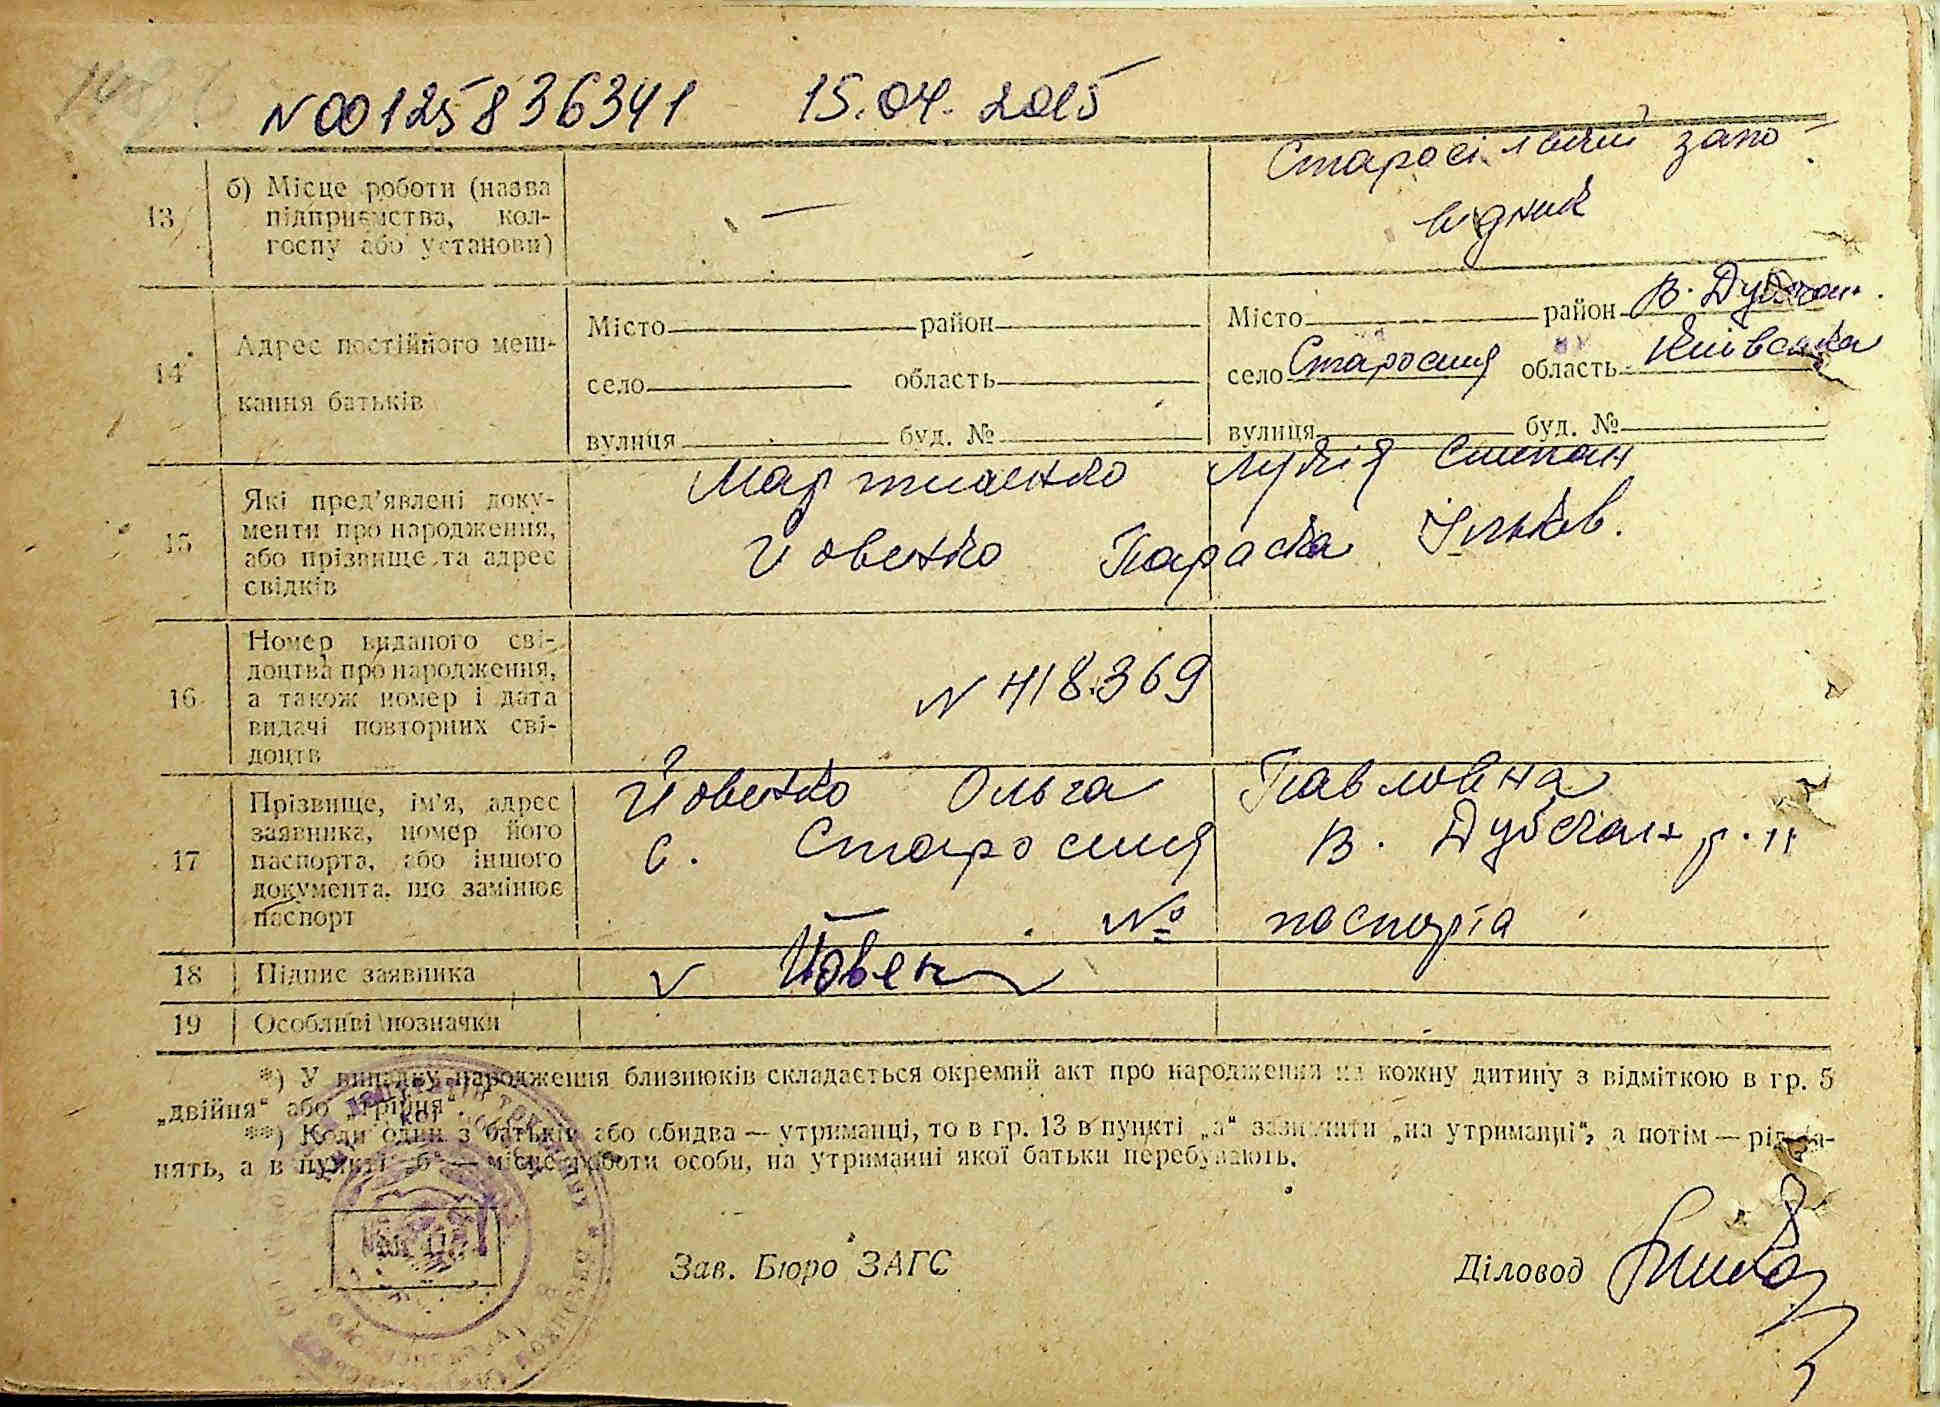 N00125836341 15.04.2015
13
б) Місце роботи (назва
підприємства, кол-
госпу або установи)
—
Старосільський запо-
відник
14
Адрес постійного меш-
кання батьків
Місто район
село область
вулиця буд. №
Місто район В. Дубечан.
село Старосілля область Київська
вулиця буд. №
15
Які пред'явлені доку-
менти про народження,
або прізвище та адрес
свідків
Мартиненко Лукія Степан
Йовенко Параска Ільків.
16
Номер виданого сві-
доцтва про народження,
а також номер і дата
видачі повторних сві-
доцтв
N 418369
17
Прізвище, ім'я, адрес
заявника, номер його
паспорта, або іншого
документа, що замінює
паспорт
Йовенко Ольга Павловна
с. Старосілля В. Дубечан р-н
— № паспорта
18 Підпис заявника
v Йовен
19 Особливі позначки
*) У випадку народження близнюків складається окремий акт про народження на кожну дитину з відміткою в гр. 5
„двійня“ або „трійня“.
**) Коли один з батьків або обидва — утриманці, то в гр. 13 в пункті „а“ зазначити „на утриманні“, а потім —
нять, а в пункті „б“ — місце роботи особи, на утриманні якої батьки перебувають.
Зав. Бюро ЗАГС
Діловод